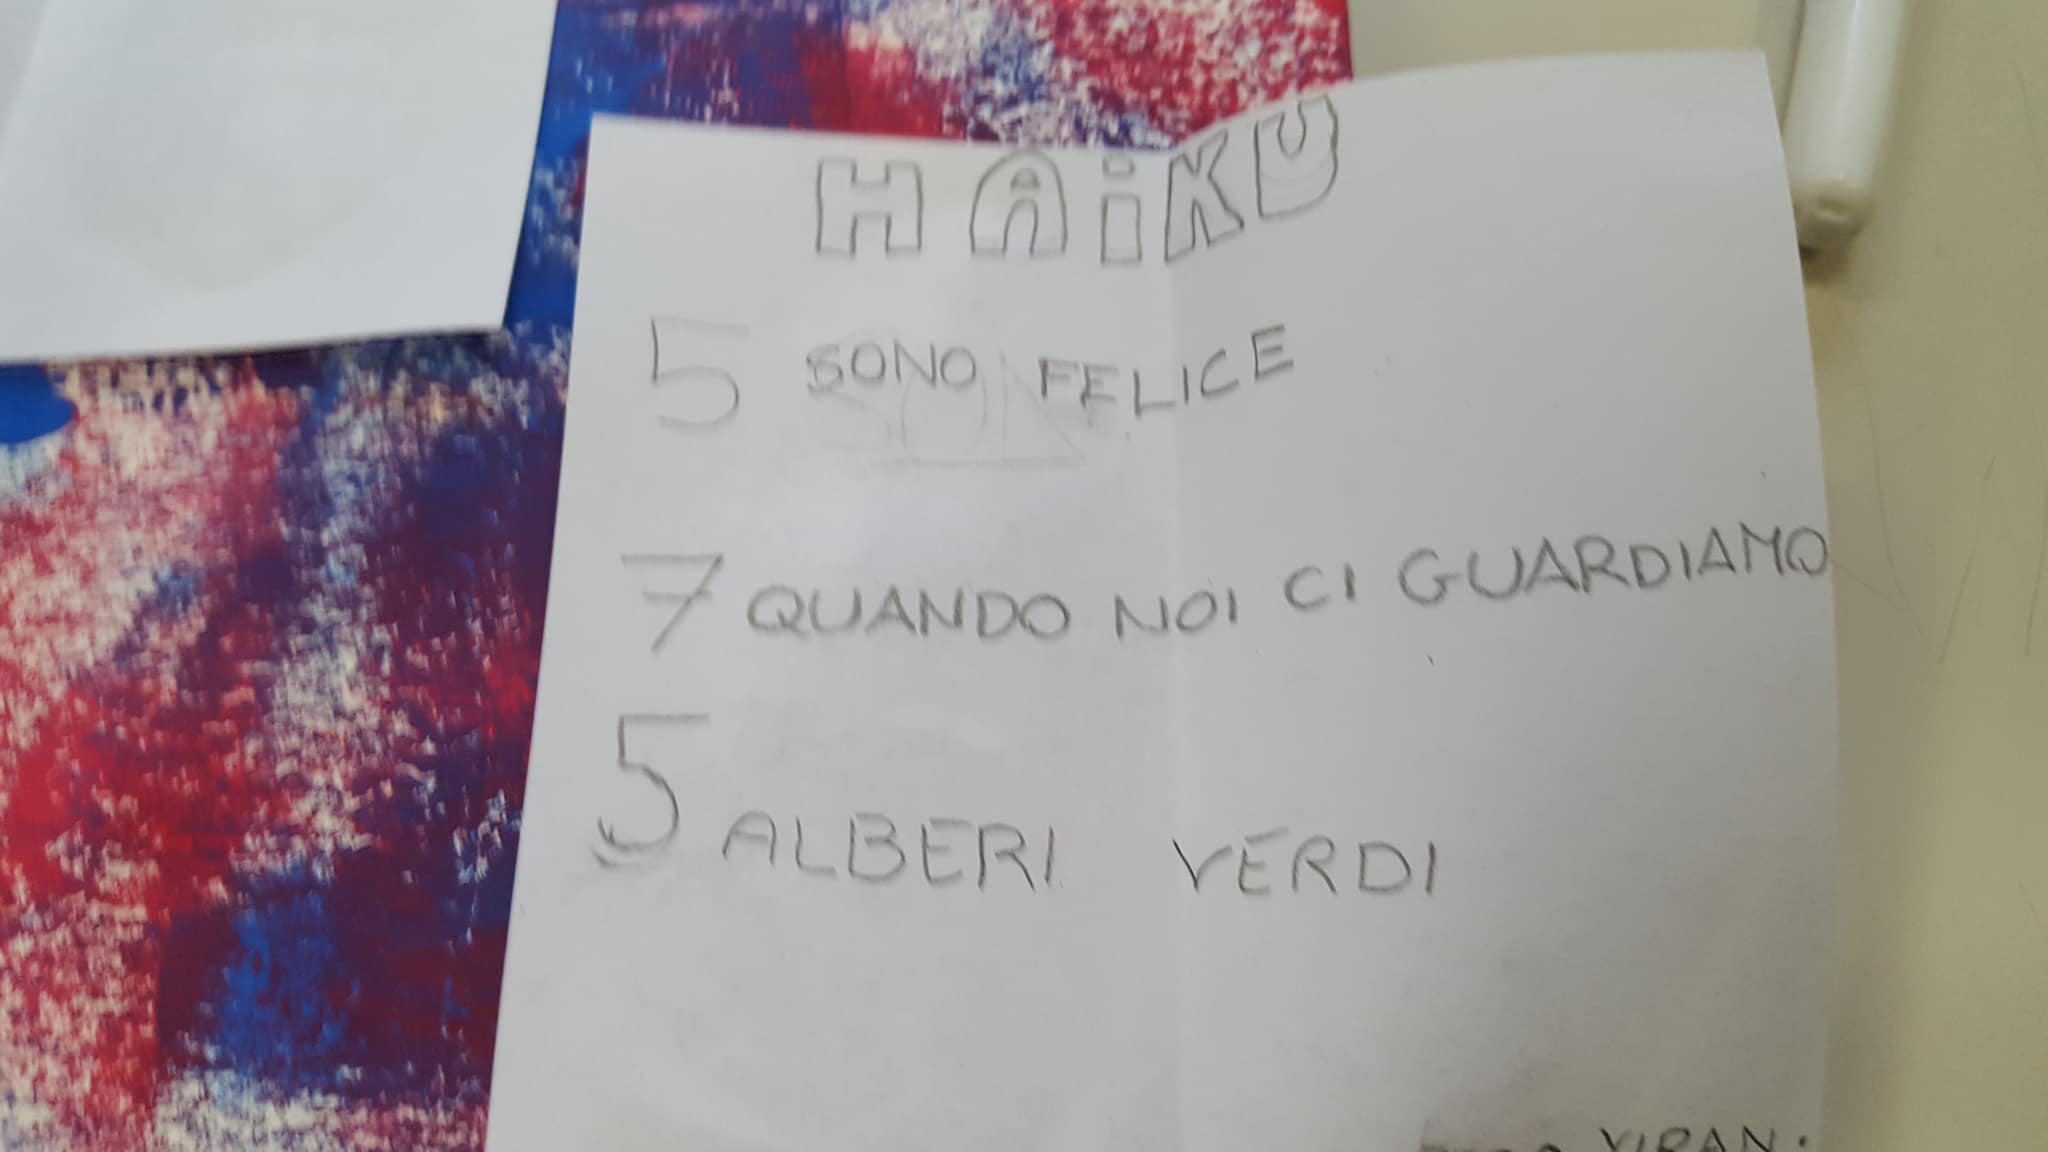 HAiKU
5 SONO FELICE
7 QUANDO NOI CI GUARDIAMO
5 ALBERI VERDI
VIRAN.